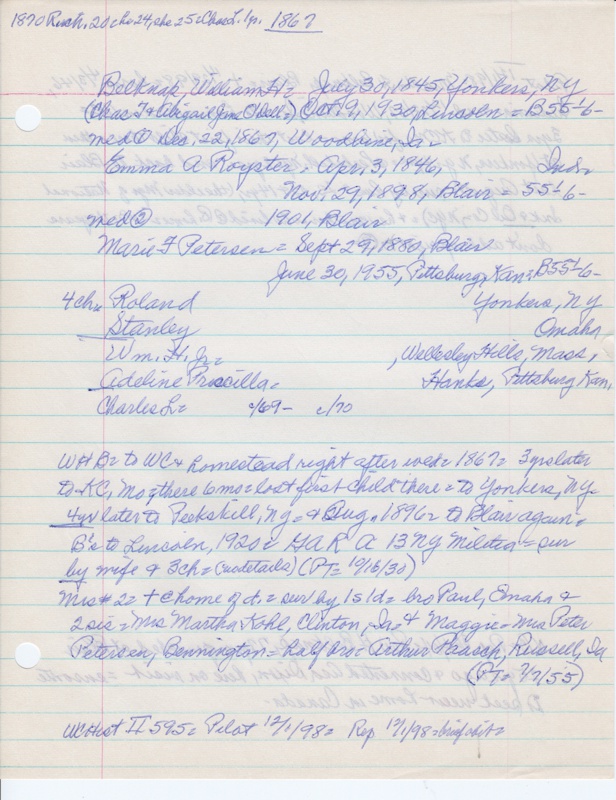 1870 Rich. 20 c ho 24, she 25 c Chas L. 1 yr. 1867
Belknap, William H = July 30, 1845, Yonkers, NY
(Chas T & Abigail Jane O'Dell =) Oct. 9, 1930, Lincoln = B55-6-
med ① Dec. 22, 1867, Woodbine, Ia -
Emma A Royster = Apr. 3, 1846, Ind =
Nov. 29, 1898, Blair 55-6-
med ② 1901, Blair
Marie F Petersen = Sept 29, 1880, Blair
June 30, 1955, Pittsburg, Kan = B55-6-
4 ch = Roland Yonkers, NY
Stanley Omaha
Wm. H. Jr = , Wellesley Hills, Mass,
Adeline Priscilla = Hanks, Pittsburg Kan,
Charles L = c/69 - c/70
WHB = to WC & homestead right after wed = 1867 = 3 yrs later
to KC, Mo & there 6 mo = lost first child there = to Yonkers, NY =
4 yr later to Peekskill, NY = & Aug. 1896 = to Blair again =
B's to Lincoln, 1920 = GAR A 13 NY Militia = sur
by wife & 3 ch = (no details) (PT = 10/16/30)
Mrs # 2 = + C home of d. = sur by 1s 1d = bro Paul, Omaha &
2 sis = Mrs Martha Kohl, Clinton, Ia = & Maggie = Mrs Peter
Petersen, Bennington = half bro = Arthur Paasch, Russell, Ia
(PT = 7/7/55)
WC Hist II 595 = Pilot 12/1/98 = Rep 12/1/98 = brief obit =